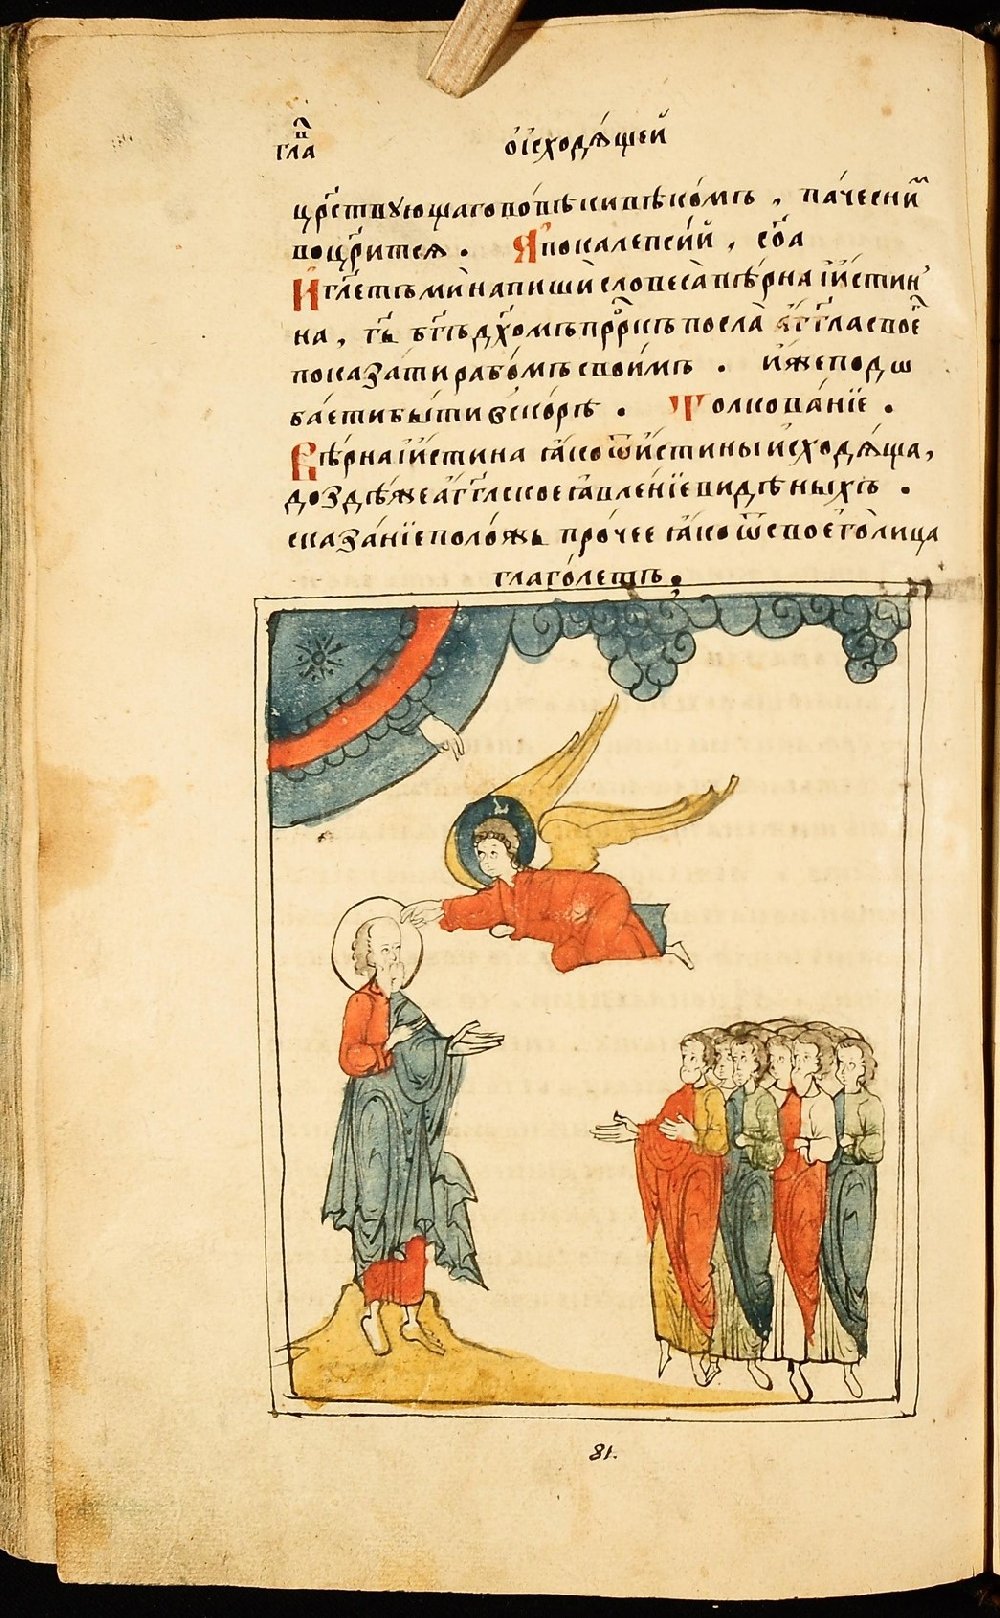 гла в҃
ѻ҆и҆сходѧ́щей
црⷭ҇твꙋющагово́вѣкивѣко́мъ, па́чесниⷨ
воцр҃итсѧ. А҆покалепсі́й, со҃а
И҆гл҃етъмѝнапишѝсловеса̀вѣ́рнаі҆и҆́стин
на, гд҇ь бг҃ъдх҃омъпрⷪ҇ркъпосла̀ а҆́гг҃ласвоѐ
показа́тирабо́мъсвои́мъ. и҆́жеподѡ
ба́етибы́тивско́рѣ. Толкова́нїе.
Вѣ́рнаі҆и҆́стина ꙗ҆́коѿи҆́стиныи҆сходѧ́ща,
доздѣ́жеа҆́гг҃лскоеꙗ҆вле́нїевидѣныхъ.
сказа́нїеполо́жь про́чее ꙗ҆́коѿсвоегѡ̀лица
глаго́летъ.
81.